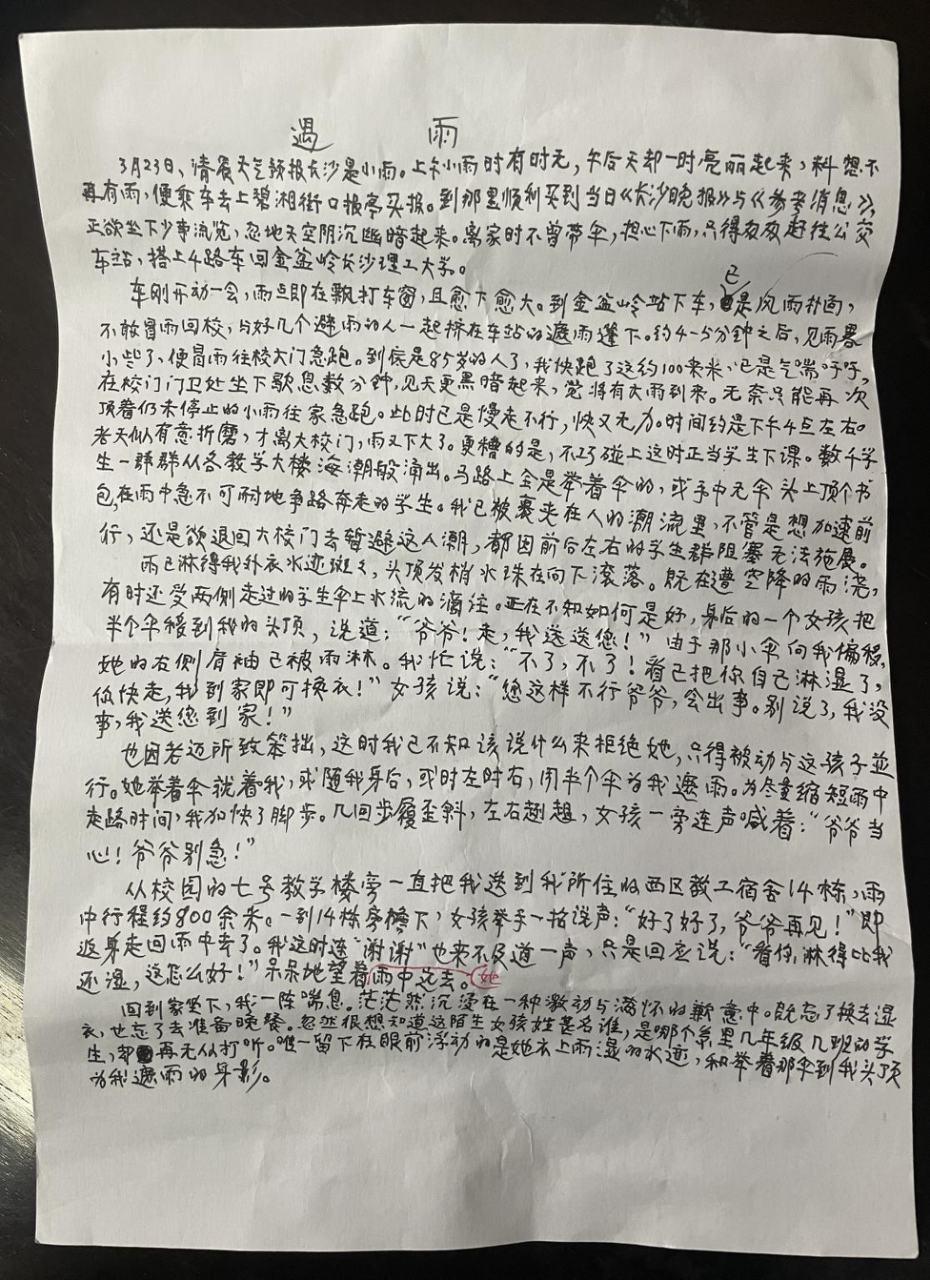 遇 雨
3月23日、清晨天气预报长沙是小雨。上午小雨时有时无，午后天却一时亮丽起来，料想不
再有雨，便乘车去上碧湘街口报亭买报。到那里顺利买到当日《长沙晚报》与《参考消息》，
正欲坐下少事流览，忽地天空阴沉幽暗起来。离家时不曾带伞，担心下雨，只得忽忽赶往公交
车站，搭上4路车回金盆岭长沙理工大学。
车刚开动一会，雨点即在飘打车窗，且愈下愈大。到金盆岭站下车，已是风雨扑面，
不敢冒雨回校，与好几个避雨的人一起挤在车站的遮雨蓬下。约4-5分钟之后，见雨略
小些了、便冒雨往校大门急跑。到底是85岁的人了，我快跑了这约100来米、已是气喘吁吁，
在校门门卫处坐下歇息数分钟，见天更黑暗起来，觉将有大雨到来。无奈只能再次
顶着仍未停止的小雨往家急跑。此时已是慢走不行，快又无力。时间约是下午4点左右。
老天似有意折磨，才离大校门，雨又下大了。更糟的是，不巧碰上这时正当学生下课。数千学
生一群群从各教学大楼海潮般涌出。马路上全是举着伞的，或手中无伞头上顶个书
包，在雨中急不可耐地争路奔走的学生。我已被裹夹在人的潮流里，不管是想加速前
行，还是欲退回大校门去暂避这人潮，都因前后左右的学生群阻塞无法施展。
雨已淋得我外衣水迹斑々，头顶发梢水珠在向下滚落。既在遭空降的雨浇，
有时还受两侧走过的学生伞上水流的滴注。正在不知如何是好，身后的一个女孩把
半个伞移到我的头顶，说道：“爷爷！走，我送送您！”由于那小伞向我偏移，
她的右侧肩袖已被雨淋。我忙说：“不了，不了！看已把你自己淋湿了，
你快走，我到家即可换衣！”女孩说：“您这样不行爷爷，会出事。别说了，我没
事，我送您到家！”
也因老迈所致笨拙，这时我已不知该说什么来拒绝她，只得被动与这孩子並
行。她举着伞就着我，或随我身后，或时左时右，用半个伞为我遮雨。为尽量缩短雨中
走路时间，我加快了脚步。几回步履歪斜，左右趔趄，女孩一旁连声喊着：“爷爷当
心！爷爷别急！”
从校园的七号教学楼旁一直把我送到我所住的西区教工宿舍14栋，雨
中行程约800余米。一到14栋旁檐下，女孩举手一招说声：“好了好了，爷爷再见！”即
返身走回雨中去了。我这时连“谢谢”也来不及道一声，只是回应说：“看你，淋得比我
还湿，这怎么好！”呆呆地望着雨中她去。
回到家坐下，我一阵喘息。茫茫然沉浸在一种激动与满怀的歉意中。既忘了换去湿
衣，也忘了去准备晚餐。忽然很想知道这陌生女孩姓甚名谁，是哪个系里几年级几班的学
生，却再无从打听。唯一留下在眼前浮动的是她衣上雨湿的水迹，和举着那伞到我头顶
为我遮雨的身影。